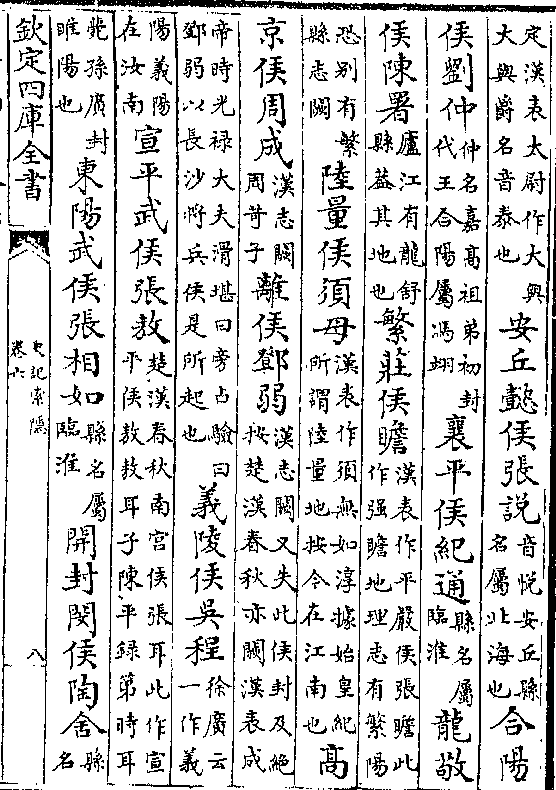 定漢表太尉作大興大興爵名音泰也安丘懿侯張説音悦安丘縣名屬北海也合陽
侯劉仲仲名嘉高祖弟初封代王合陽屬馮翊襄平侯紀通縣名屬臨淮龍敬
侯陳署廬江有龍舒縣葢其地也繁莊侯瞻漢表作平嚴侯張瞻此作强瞻地理志有繁陽
恐别有繁縣志闕陸量侯須母漢表作須無如淳據始皇紀所謂陸量地按令在江南也髙
京侯周成漢志闕周苛子離侯鄧弱漢志闕又失此侯封及絶按楚漢春秋亦闕漢表成
帝時光禄大夫滑堪曰旁占驗曰鄧弱以長沙將兵侯是所起也義陵侯吳程徐廣云一作義
陽義陽在汝南宣平武侯張敖楚漢春秋南宫侯張耳此作宣平侯敖敖耳子陳平録第時耳
薨孫廣封睢陽也東陽武侯張相如縣名屬臨淮開封閔侯陶舍縣名
欽定四庫全書
史記索隱
卷六
八